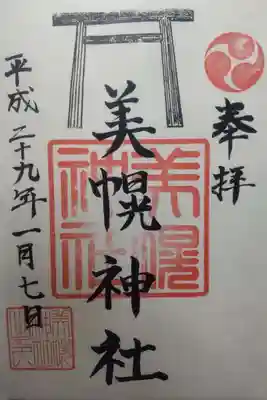 奉拝
美幌神社
平成二十九年一月七日
美幌
神社